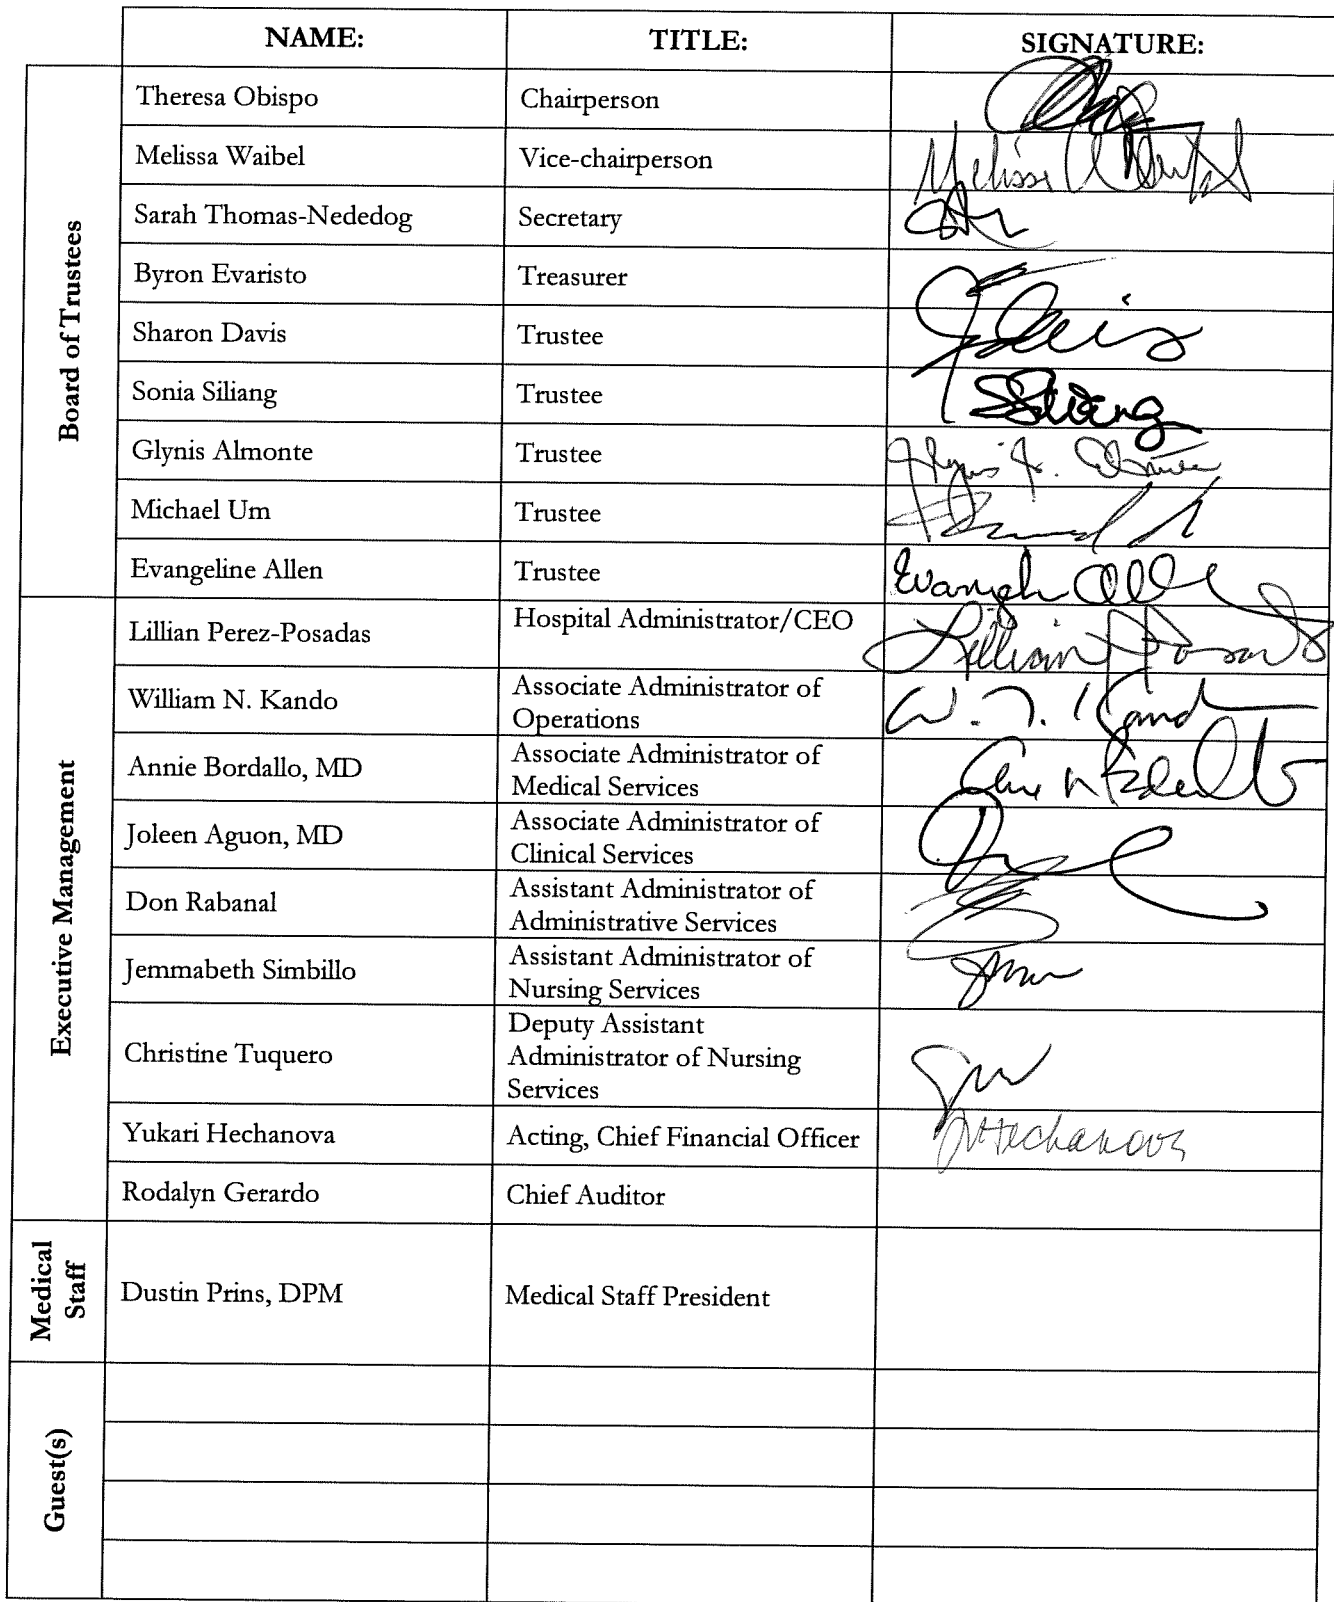 NAME: TITLE: SIGNATURE:
Board of Trustees
Theresa Obispo Chairperson
Melissa Waibel Vice-chairperson Melissa
Sarah Thomas-Nededog Secretary
Byron Evaristo Treasurer
Sharon Davis Trustee Davis
Sonia Siliang Trustee SSiliang
Glynis Almonte Trustee Glynis
Michael Um Trustee
Evangeline Allen Trustee
Executive Management
Lillian Perez-Posadas Hospital Administrator/CEO Lillian
William N. Kando Associate Administrator of
Operations W. N. Kando
Annie Bordallo, MD Associate Administrator of
Medical Services
Joleen Aguon, MD Associate Administrator of
Clinical Services
Don Rabanal Assistant Administrator of
Administrative Services
Jemmabeth Simbillo Assistant Administrator of
Nursing Services
Christine Tuquero Deputy Assistant
Administrator of Nursing
Services
Yukari Hechanova Acting, Chief Financial Officer Hechanova
Rodalyn Gerardo Chief Auditor
Medical
Staff
Dustin Prins, DPM Medical Staff President
Guest(s)